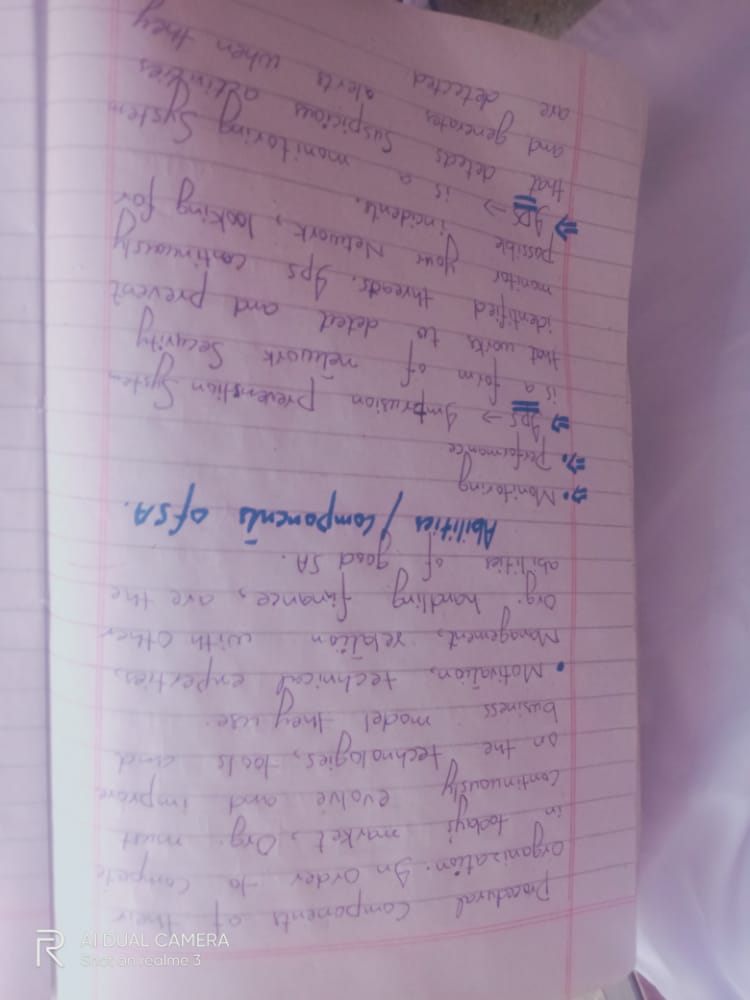 Procedural Components of their
Organization. In Order to compete
in today's market, Org. must
continuously evolve and improve
on the technologies, tools and
business model they use.
• Motivation, technical experties,
Management, relation with other
Org. handling finance, are the
abilities of good SA.
Abilities / Components of SA.
⇒• Monitoring
⇒• Performance
⇒ IPS → Imtrusion prevenstion System
is a form of network Security
that works to detect and prevent
identified threads. Ips continuously
monitor your Network, looking for
possible incidents.
⇒ IPS → is a monitoring System
that detects Suspicious activities
and generates alerts when they
are detected
R
AI DUAL CAMERA
Shot on realme 3